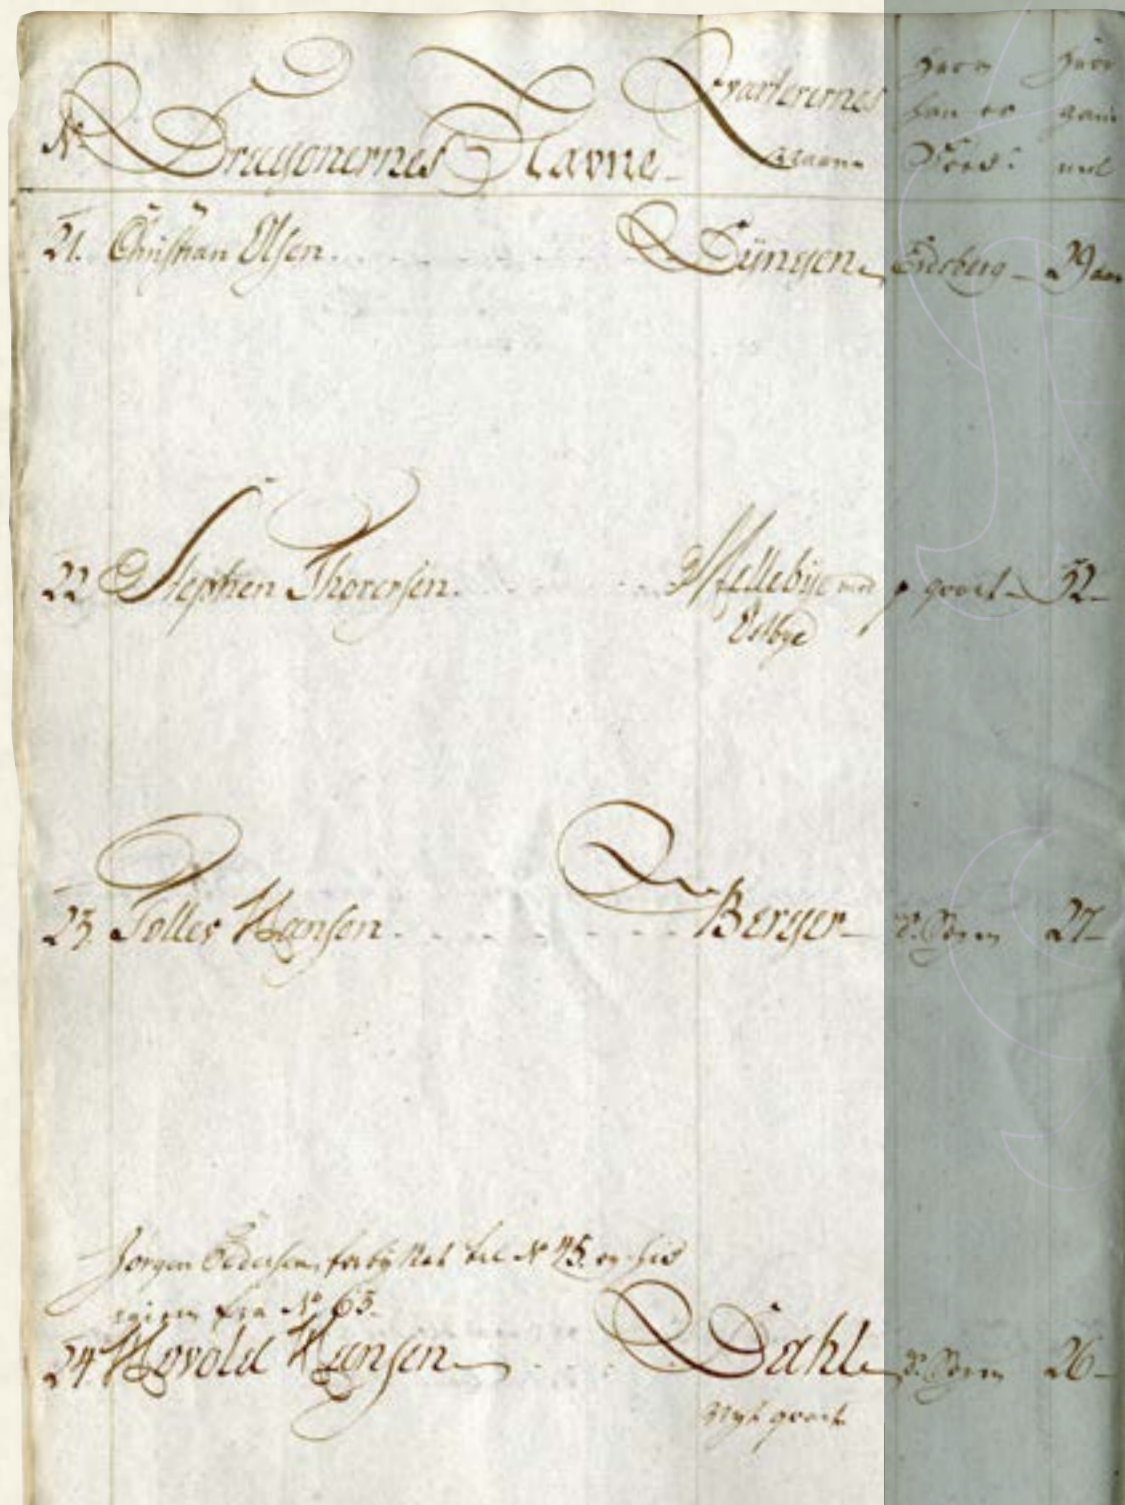 No Dragonernes Navne Qvarterernes Navne
hvor han er Fød: hvor gam̅el
21. Christian Olsen. Dÿngen Eidsberg 29 aar
22 Stephen Thoresen. Mellebÿe med Østbye qvart 32
23. Toller Hansen Berger Do Sogn 27
Jørgen Pedersen forbÿttet til No 45. og hid
igien fra No 63.
24. Hovold Hansen Dahl Do Sogn 26
Nyt qvart